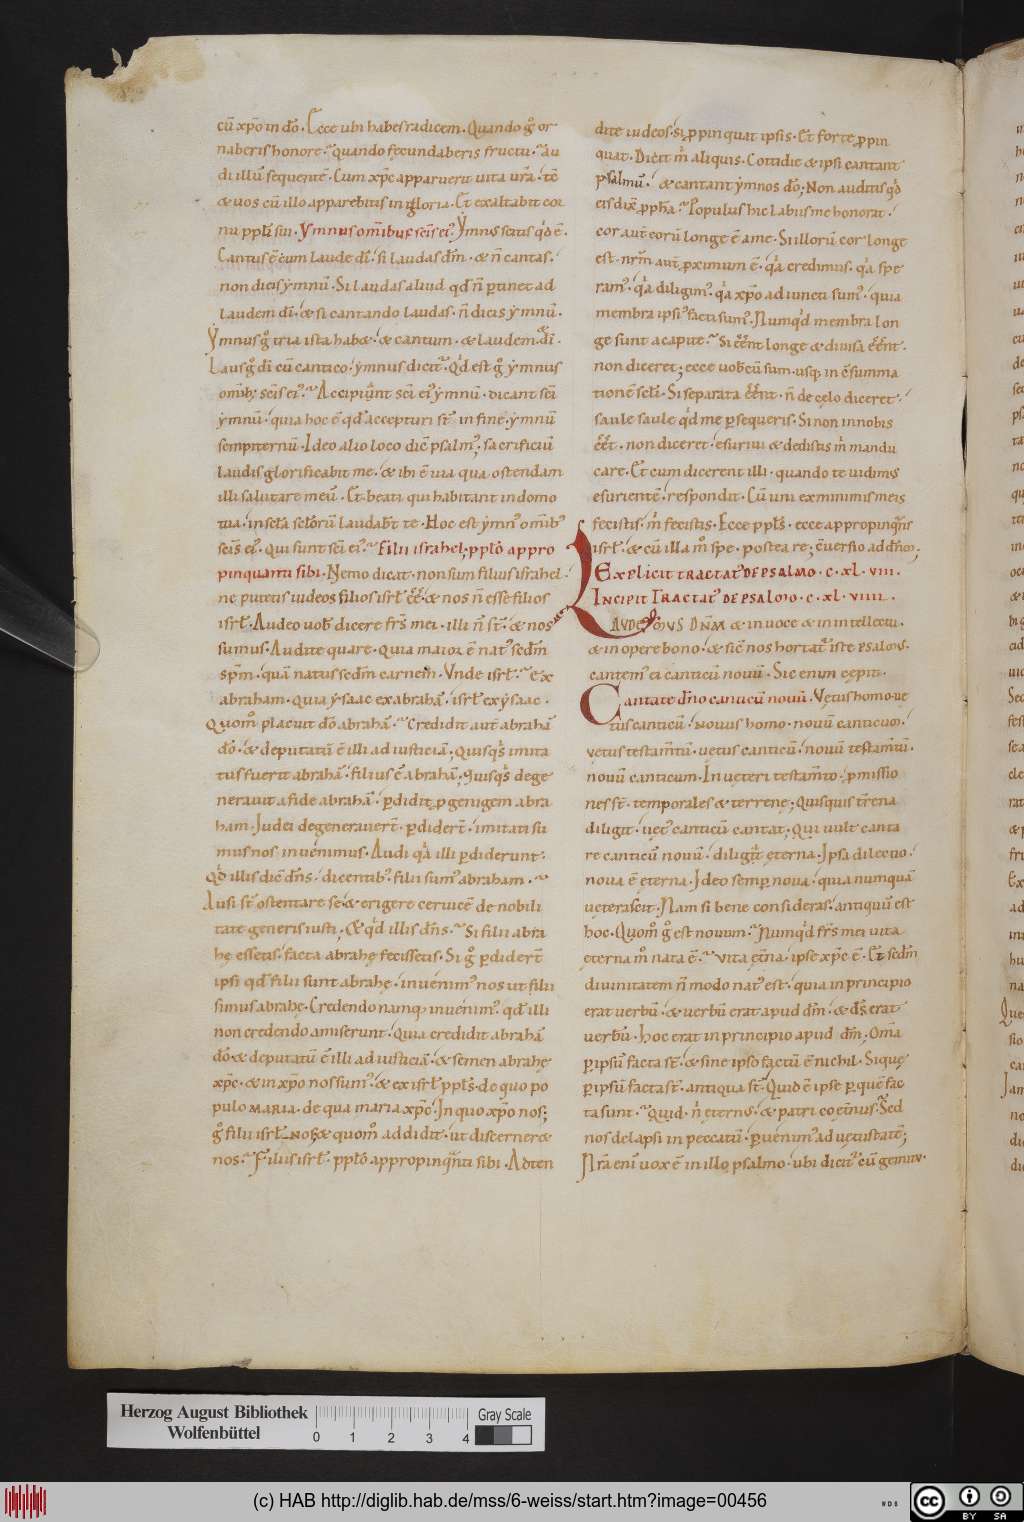 cū xp̄o in dō. Ecce ubi habes radicem. Quando gͦ or
naberis honore. quando fecundaberis fructu. au
di illū sequentē. Cum xp̄c apparuerit uita ur̄a. tc̄
& uos cū illo apparebitis in gloria. Et exaltabit cor
nu ppłi sui. Ymnus omībus scīs ei'. Ymnus scitis qd ē.
Cantus ē cum laude dī. si laudas dm̄. & n̄ cantas.
non dicis ymnū. Si laudas aliud qd n̄ ptinet ad
laudem dī. & si cantando laudas. n̄ dicis ymnū.
Ymnus gͦ tria ista hab&. & cantum. & laudem. & dī.
Laus gͦ dī cū cantico. ymnus dicit'. Qd est gͦ ymnus
omīb; scīs ei'. Accipiunt scī ei' ymnū. dicant scī
ymnū. quia hoc ē qd accepturi st̄ in fine. ymnū
sempiternū. Ideo alio loco dic̄ psalm'; sacrificiū
laudis glorificabit me. & ibi ē uia qua ostendam
illi salutare meū. Et beati qui habitant in domo
tua. in scła scłorū laudabt̄ te. Hoc est ymn' omīb'
scīs ei'. qui sunt scī ei'. Filii israhel; ppło appro
pinquanti sibi. Nemo dicat. non sum filius israhel.
ne putetis iudeos filios isrł ēē. & nos n̄ esse filios
isrł. Audeo uob̄ dicere frs̄ mei. illi n̄ st̄. & nos
sumus. Audite quare. quia maior ē nat' sedm̄
spm̄. quā natus sedm̄ carnem. Vnde isrł. ex
abraham. quia ysaac ex abrahā. isrł ex ysaac.
Quom̄ placuit dō abrahā. Credidit aut̄ abrahā
dō. & deputatū ē illi ad iusticiā; quisqs imita
tus fuerit abrahā. filius ē abrahā; Quisqs dege
nerauit a fide abrahā. pdidit pgeniem abra
ham. Iudei degenerauert̄. pdidert̄. imitati su
mus nos inuenimus. Audi qa illi pdiderunt.
Qd illis dic̄ dn̄s. dicentib' filii sum' abraham.
Ausi st̄ ostentare se & erigere ceruicē de nobili
tate generis iusti; & qd illis dn̄s. Si filii abra
hę essetis. facta abrahę fecissetis. Si gͦ pdidert̄
ipsi qd filii sunt abrahę. inuenim' nos ut filii
simus abrahę. Credendo nunq; inuenim'. qd illi
non credendo amiserunt. Quia credidit abrahā
dō. & deputatū ē illi ad iusticiā. & semen abrahę
xp̄c. & in xp̄o nos sum'. & ex isrł ppłs. de quo po
pulo maria. de qua maria xp̄c. In quo xp̄o nos;
gͦ filii isrł nos & quom̄ addidit. ut discerner&
nos. Filiis isrł. ppło appropinqnti sibi. Adten
dite iudeos. si ppinquat ipsis. Et forte ppin
quat. Dicit m̄ aliquis. Cottidie & ipsi cantant
psalmū. & cantant ymnos dō; Non auditis qd
eis dix̄ ppha. Populus hic labiis me honorat.
cor aut̄ eorū longe ē a me. Si illorū cor longe
est. nrm̄ aut̄ pximum ē. qa credimus. qa spe
ram'. qa diligim'. qa xp̄o adiuncti sum'. quia
membra ipsi' facti sum'. Numqd membra lon
ge sunt a capite. Si eēnt longe & diuisa eēnt.
non diceret; ecce uobcū sum. usq; in c̄summa
tionē scłi. Si separata eēnt. n̄ de cęlo diceret.
saule saule qd me psequeris. Si non in nobis
eēt. non diceret. esuriui & dedistis m̄ mandu
care. Et cum dicerent illi. quando te uidimus
esurientē. respondit. Cū uni ex minimis meis
fecistis. m̄ fecistis. Ecce ppłs. ecce appropinqns
isrł. & cū illa m̊ spe. postea re; c̄uersio ad dn̄m;
Explicit tractat' de psalmo. c. xl. viii.
Incipit tractat' de psalmo. c. xl. viiii.
Laudemus dnm & in uoce & in intellectu.
& in opere bono. & sic̄ nos hortat' iste psalm'.
cantem' ei canticū nouū. Sic enim cępit.
Cantate dn̄o canticū nouū. Vetus homo ue
tus canticū. nouus homo. nouū canticum.
uetus testam̄tū. uetus canticū. nouū testam̄tū.
nouū canticum. In ueteri testam̄to. pmissio
nes st̄. temporales & terrenę; Quisquis tr̄rena
diligit. uet' canticū cantat; Qui uult canta
re canticū nouū. diligit ęterna. Ipsa dilectio.
noua ē ęterna. Ideo semp noua. quia numquā
ueterascit. Nam si bene consideras. antiquū est
hoc. Quom̄ gͦ est nouum. Numqd frs̄ mei uita
ęterna m̊ nata ē. uita et̄na. ipse xp̄c ē. Et sedm̄
diuinitatem n̄ modo nat' est. quia in principio
erat uerbū. & uerbū erat apud dm̄. & ds̄ erat
uerbū. hoc erat in principio apud dm̄; Omā
p ipsū facta st̄. & sine ipso factū ē nichil. Si quę
p ipsū facta st̄. antiqua st̄. Quid ē ipse p quē fac
ta sunt. Quid. n̄ etern'. & patri coet̄nus. Sed
nos delapsi in peccatū. puenim' ad uetustatē;
Nr̄a eni' uox ē in illo psalmo. ubi dicit' cū gemitu.
Herzog August Bibliothek
Wolfenbüttel
0 1 2 3 4
Gray Scale
(c) HAB http://diglib.hab.de/mss/6-weiss/start.htm?image=00456
WDB
cc
BY SA